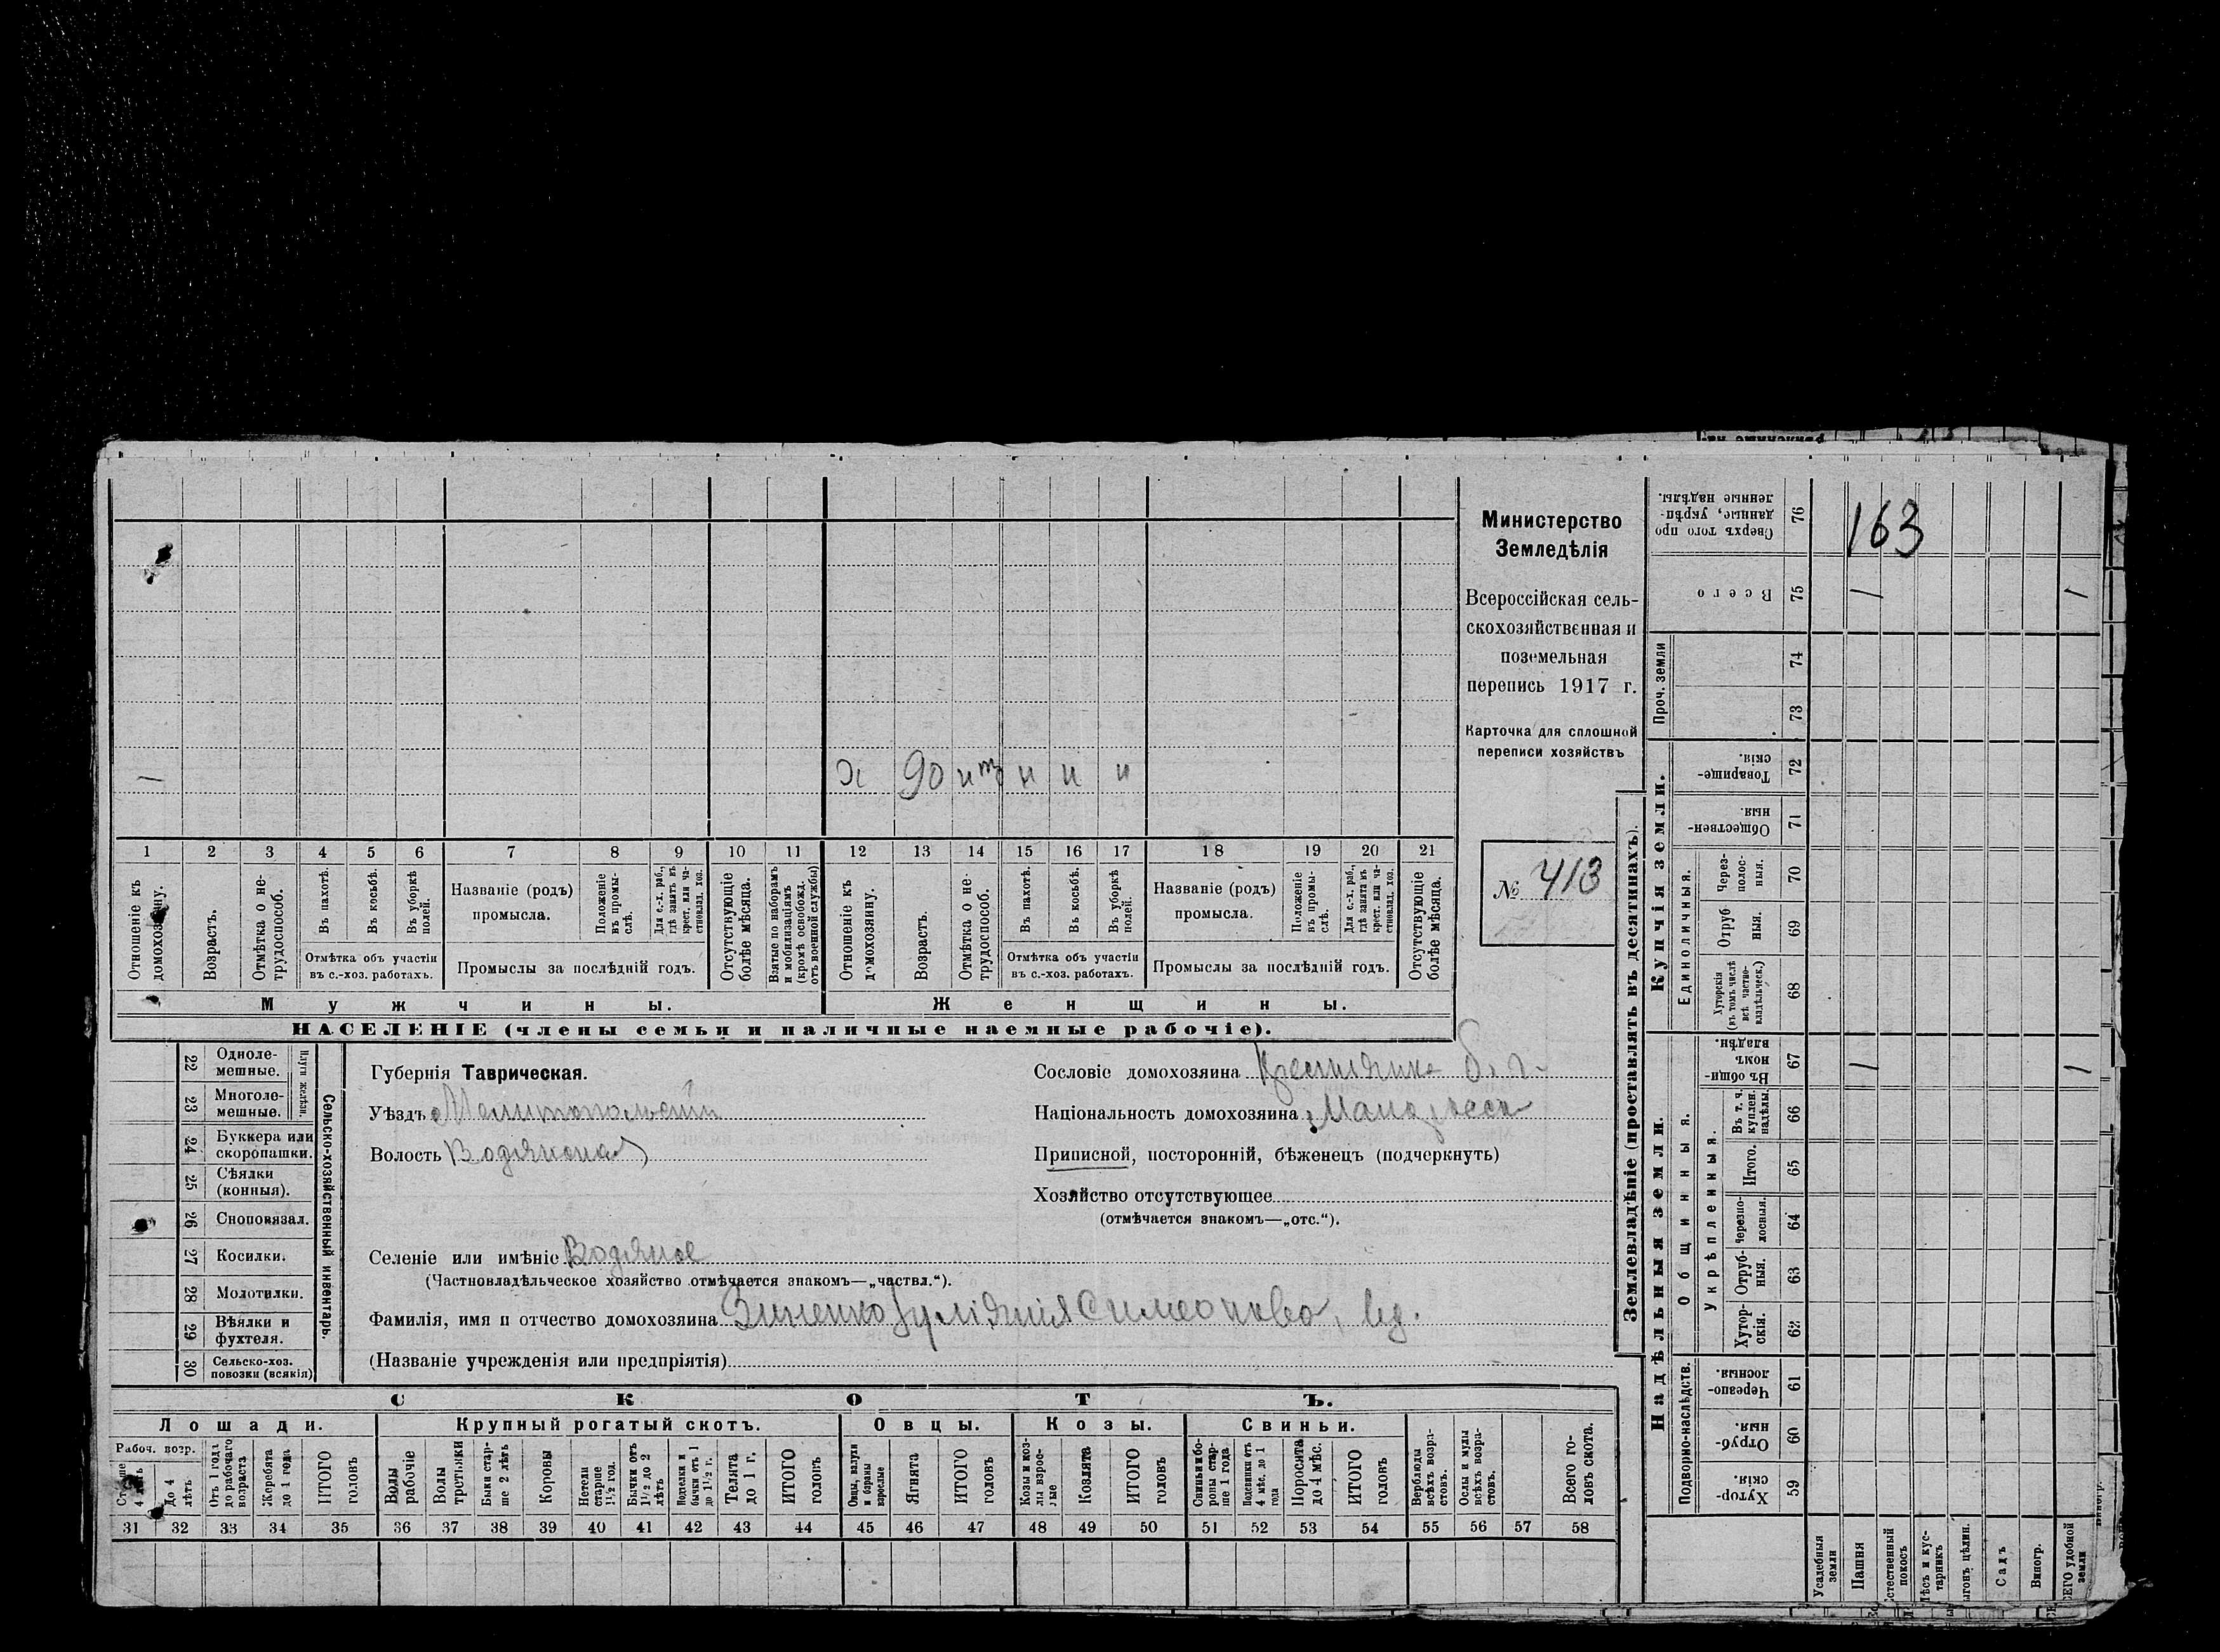 163
Министерство
Земледѣлія
Всероссійская сель-
скохозяйственная и
поземельная
перепись 1917 г.
Карточка для сплошной
переписи хозяйствъ
№ 413
х 90 н и и
1 2 3 4 5 6 7 8 9 10 11 12 13 14 15 16 17 18 19 20 21
Отношеніе къ домохозяину.
Возрастъ.
Отмѣтка о не-
трудоспособ.
Въ пахотѣ.
Въ косьбѣ.
Въ уборкѣ
полей.
Отмѣтка объ участіи
въ с.-хоз. работахъ.
Названіе (родъ)
промысла.
Положеніе
въ промы-
слѣ.
Для с.-х. раб.,
гдѣ занятъ въ
крест. или ча-
стновлад. хоз.
Промыслы за послѣдній годъ.
Отсутствующіе
болѣе мѣсяца.
Взятые по наборамъ
и мобилизаціямъ
(кромѣ освобожд.
отъ военной службы)
Отношеніе къ
домохозяину.
Возрастъ.
Отмѣтка о не-
трудоспособ.
Въ пахотѣ.
Въ косьбѣ.
Въ уборкѣ
полей.
Отмѣтка объ участіи
въ с.-хоз. работахъ.
Названіе (родъ)
промысла.
Положеніе
въ промы-
слѣ.
Для с.-х. раб.,
гдѣ занята въ
крест. или ча-
стновлад. хоз.
Промыслы за послѣдній годъ.
Отсутствующіе
болѣе мѣсяца.
Мужчины. Женщины.
НАСЕЛЕНІЕ (члены семьи и наличные наемные рабочіе).
22 Одноле-
мешные.
23 Многоле-
мешные.
Плуги желѣзн.
24 Буккера или
скоропашки.
25 Сѣялки
(конныя).
26 Сноповязал.
27 Косилки.
28 Молотилки.
29 Вѣялки и
фухтеля.
30 Сельско-хоз.
повозки (всякія)
Сельско-хозяйственный инвентарь.
Губернія Таврическая.
Уѣздъ Мелитопольскій
Волость Водянская
Селеніе или имѣніе Водяное
(Частновладѣльческое хозяйство отмѣчается знакомъ—„частвл.“).
Фамилія, имя и отчество домохозяина Зиненко Симеоновна, вд.
(Названіе учрежденія или предпріятія)
Сословіе домохозяина Крестьянка б. г.
Національность домохозяина Малорусск
Приписной, посторонній, бѣженецъ (подчеркнуть)
Хозяйство отсутствующее
(отмѣчается знакомъ—„отс.“).
СКОТЪ.
Лошади. Крупный рогатый скотъ. Овцы. Козы. Свиньи.
Рабоч. возр.
Старше
4 лѣтъ
До 4
лѣтъ
Отъ 1 года
до рабочаго
возраста
Жеребята
до 1 года
ИТОГО
головъ
Волы
рабочіе
Волы
третьяки
Быки стар-
ше 2 лѣтъ
Коровы
Нетели
старше
1½ год.
Бычки отъ
1½ до 2
лѣтъ
Подтелки и
бычки отъ 1
до 1½ г.
Телята
до 1 г.
ИТОГО
головъ
Овцы, валухи
и бараны
взрослые
Ягнята
ИТОГО
головъ
Козы и коз-
лы взрос-
лые
Козлята
ИТОГО
головъ
Свиньи и бо-
ровы стар-
ше 1 года
Подсвинки отъ
4 мѣс. до 1
года
Поросята
до 4 мѣс.
ИТОГО
головъ
Верблюды
всѣхъ возра-
стовъ.
Ослы и мулы
всѣхъ возра-
стовъ.
Всего го-
ловъ скота.
31 32 33 34 35 36 37 38 39 40 41 42 43 44 45 46 47 48 49 50 51 52 53 54 55 56 57 58
Землевладѣніе (проставлять въ десятинахъ).
Надѣльныя земли.
Купчія земли.
Проч. земли
Подворно-наслѣдств.
Общинныя.
Укрѣпленныя.
Единоличныя.
Хутор-
скія. 59
Отруб-
ныя. 60
Черезпо-
лосныя. 61
Хутор-
скія. 62
Отруб-
ныя. 63
Черезпо-
лосныя. 64
Итого. 65
Въ т. ч.
куплен.
надѣлы. 66
Въ общин-
номъ
владѣн. 67
Хуторскія
(въ томъ числѣ
всѣ частно-
владѣльческ.) 68
Отруб-
ныя. 69
Через-
полос-
ныя. 70
Обществен-
ныя. 71
Товарище-
скія. 72
73
74
Всего 75
Сверхъ того про-
данные, укрѣп-
ленные надѣлы. 76
Усадебныя
земли
Пашня
Естественный
покосъ
Лѣсъ и кус-
тарникъ
Выгонъ цѣлин.
Садъ
Виногр.
ВСЕГО удобной
земли